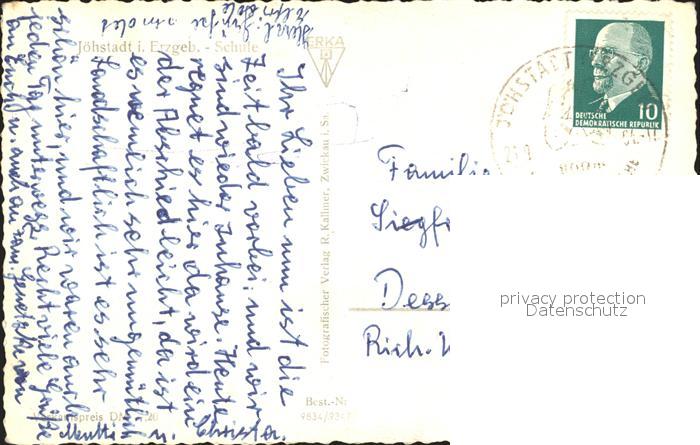 Jöhstadt i. Erzgeb. - Schule
ERKA
Ihr Lieben nun ist die
Zeit bald vorbei, und wir
sind wieder zuhause. Heute
regnet es hier da wird ein
der Abschied leicht, da ist
es nemlich sehr ungemütlich
Landschaftlich ist es sehr
schön hier, und wir waren auch
jeden Tag unterwegs. Recht viele Grüße
für Euch
Mutti u. Christa.
Fotografischer Verlag R. Kallmer, Zwickau i. Sa.
Verkaufspreis DM 0,20
Best.-Nr
9634/934
DEUTSCHE
DEMOKRATISCHE REPUBLIK
10
JÖHSTADT (ERZGEB
Familie
Siegf
Dess
Rich.
privacy protection
Datenschutz